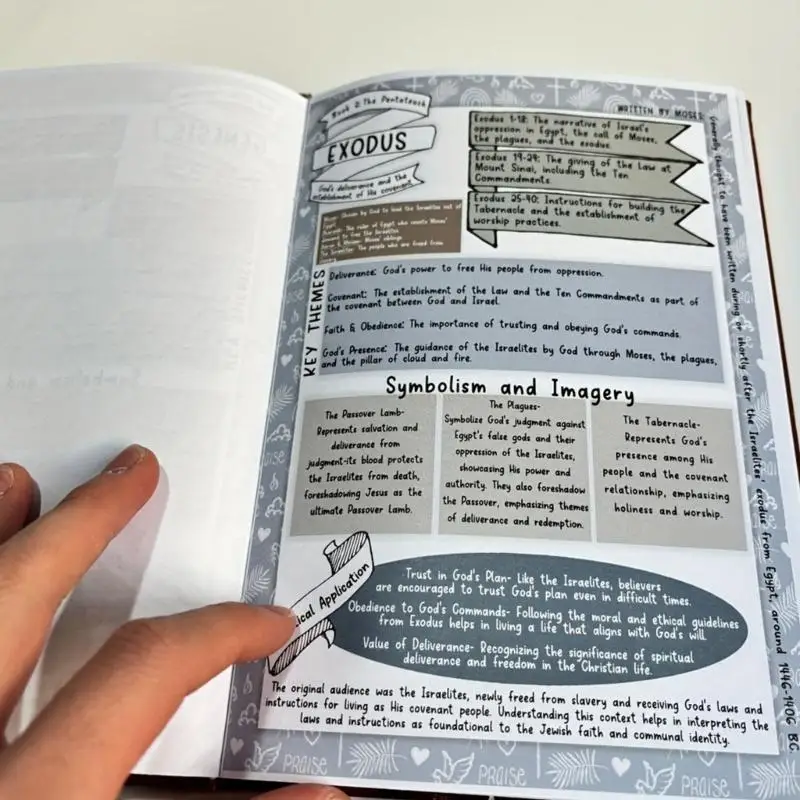 Book 2: The Pentateuch
EXODUS
God's deliverance and the
establishment of His covenant
WRITTEN BY MOSES
Exodus 1-18: The narrative of Israel's
oppression in Egypt, the call of Moses,
the plagues, and the exodus.
Exodus 19-24: The giving of the Law at
Mount Sinai, including the Ten
Commandments.
Exodus 25-40: Instructions for building the
Tabernacle and the establishment of
worship practices.
Generally thought to have been written during or shortly after the Israelites' exodus from Egypt, around 1446-1406 BC.
Moses: Chosen by God to lead the Israelites out of
Egypt
Pharaoh: The ruler of Egypt who resists Moses'
demand to free the Israelites
Aaron & Miriam: Moses' siblings
The Israelites: The people who are freed from
slavery
KEY THEMES
Deliverance: God's power to free His people from oppression.
Covenant: The establishment of the Law and the Ten Commandments as part of
the covenant between God and Israel.
Faith & Obedience: The importance of trusting and obeying God's commands.
God's Presence: The guidance of the Israelites by God through Moses, the plagues,
and the pillar of cloud and fire.
Symbolism and Imagery
The Passover Lamb-
Represents salvation and
deliverance from
judgment-its blood protects
the Israelites from death,
foreshadowing Jesus as the
ultimate Passover Lamb.
The Plagues-
Symbolize God's judgment against
Egypt's false gods and their
oppression of the Israelites,
showcasing His power and
authority. They also foreshadow
the Passover, emphasizing themes
of deliverance and redemption.
The Tabernacle-
Represents God's
presence among His
people and the covenant
relationship, emphasizing
holiness and worship.
ical Application
Trust in God's Plan- Like the Israelites, believers
are encouraged to trust God's plan even in difficult times.
Obedience to God's Commands- Following the moral and ethical guidelines
from Exodus helps in living a life that aligns with God's will.
Value of Deliverance- Recognizing the significance of spiritual
deliverance and freedom in the Christian life.
The original audience was the Israelites, newly freed from slavery and receiving God's laws and
instructions for living as His covenant people. Understanding this context helps in interpreting the
laws and instructions as foundational to the Jewish faith and communal identity.
PRAISE
PRAISE
PRAISE